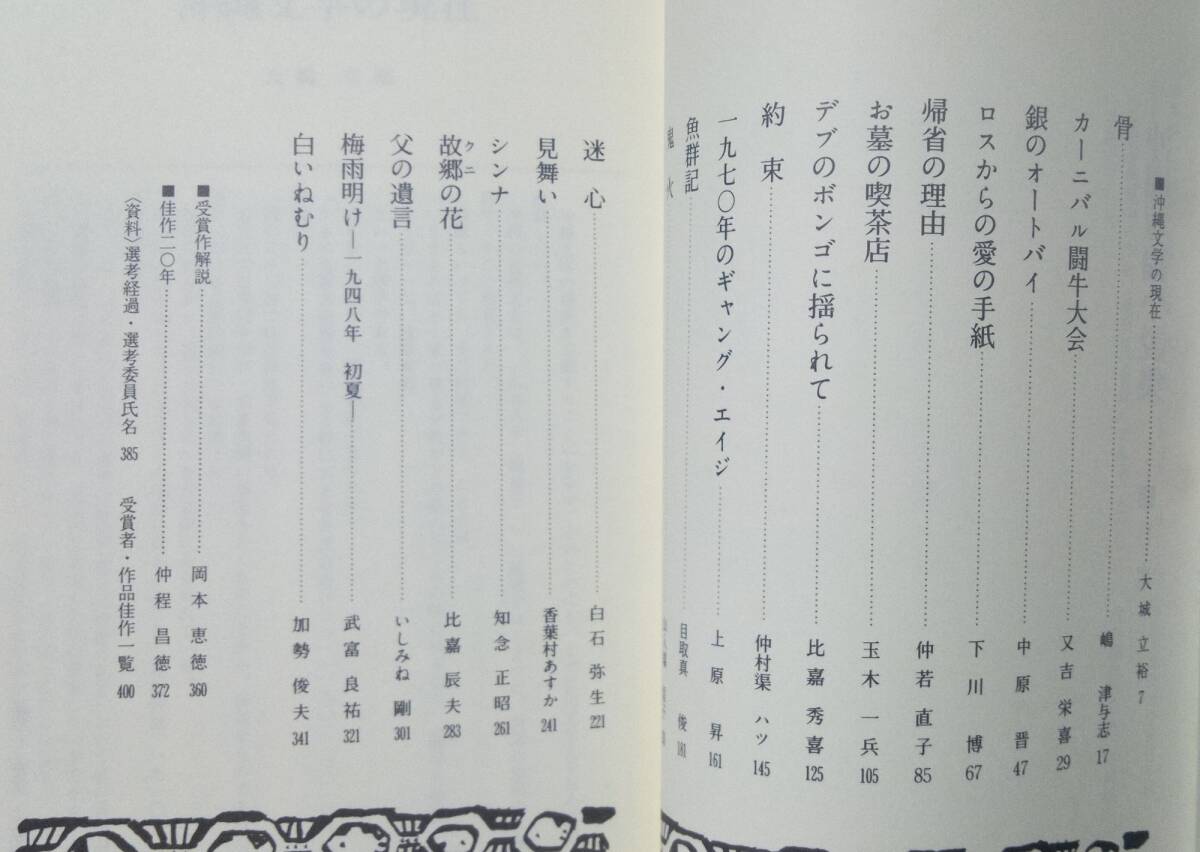 ■沖縄文学の現在……大城立裕 7
骨……嶋 津与志 17
カーニバル闘牛大会……又吉栄喜 29
銀のオートバイ……中原 晋 47
ロスからの愛の手紙……下川 博 67
帰省の理由……仲若直子 85
お墓の喫茶店……玉木一兵 105
デブのボンゴに揺られて……比嘉秀喜 125
約束……仲村渠 ハツ 145
一九七〇年のギャング・エイジ……上原 昇 161
魚群記……目取真 俊 181
火
迷心……白石弥生 221
見舞い……香葉村あすか 241
シンナ……知念正昭 261
故郷の花……比嘉辰夫 283
クニ
父の遺言……いしみね 剛 301
梅雨明け―一九四八年 初夏―……武富良祐 321
白いねむり……加勢俊夫 341
■受賞作解説……岡本恵徳 360
■佳作二〇年……仲程昌徳 372
〈資料〉選考経過・選考委員氏名 385 受賞者・作品佳作一覧 400